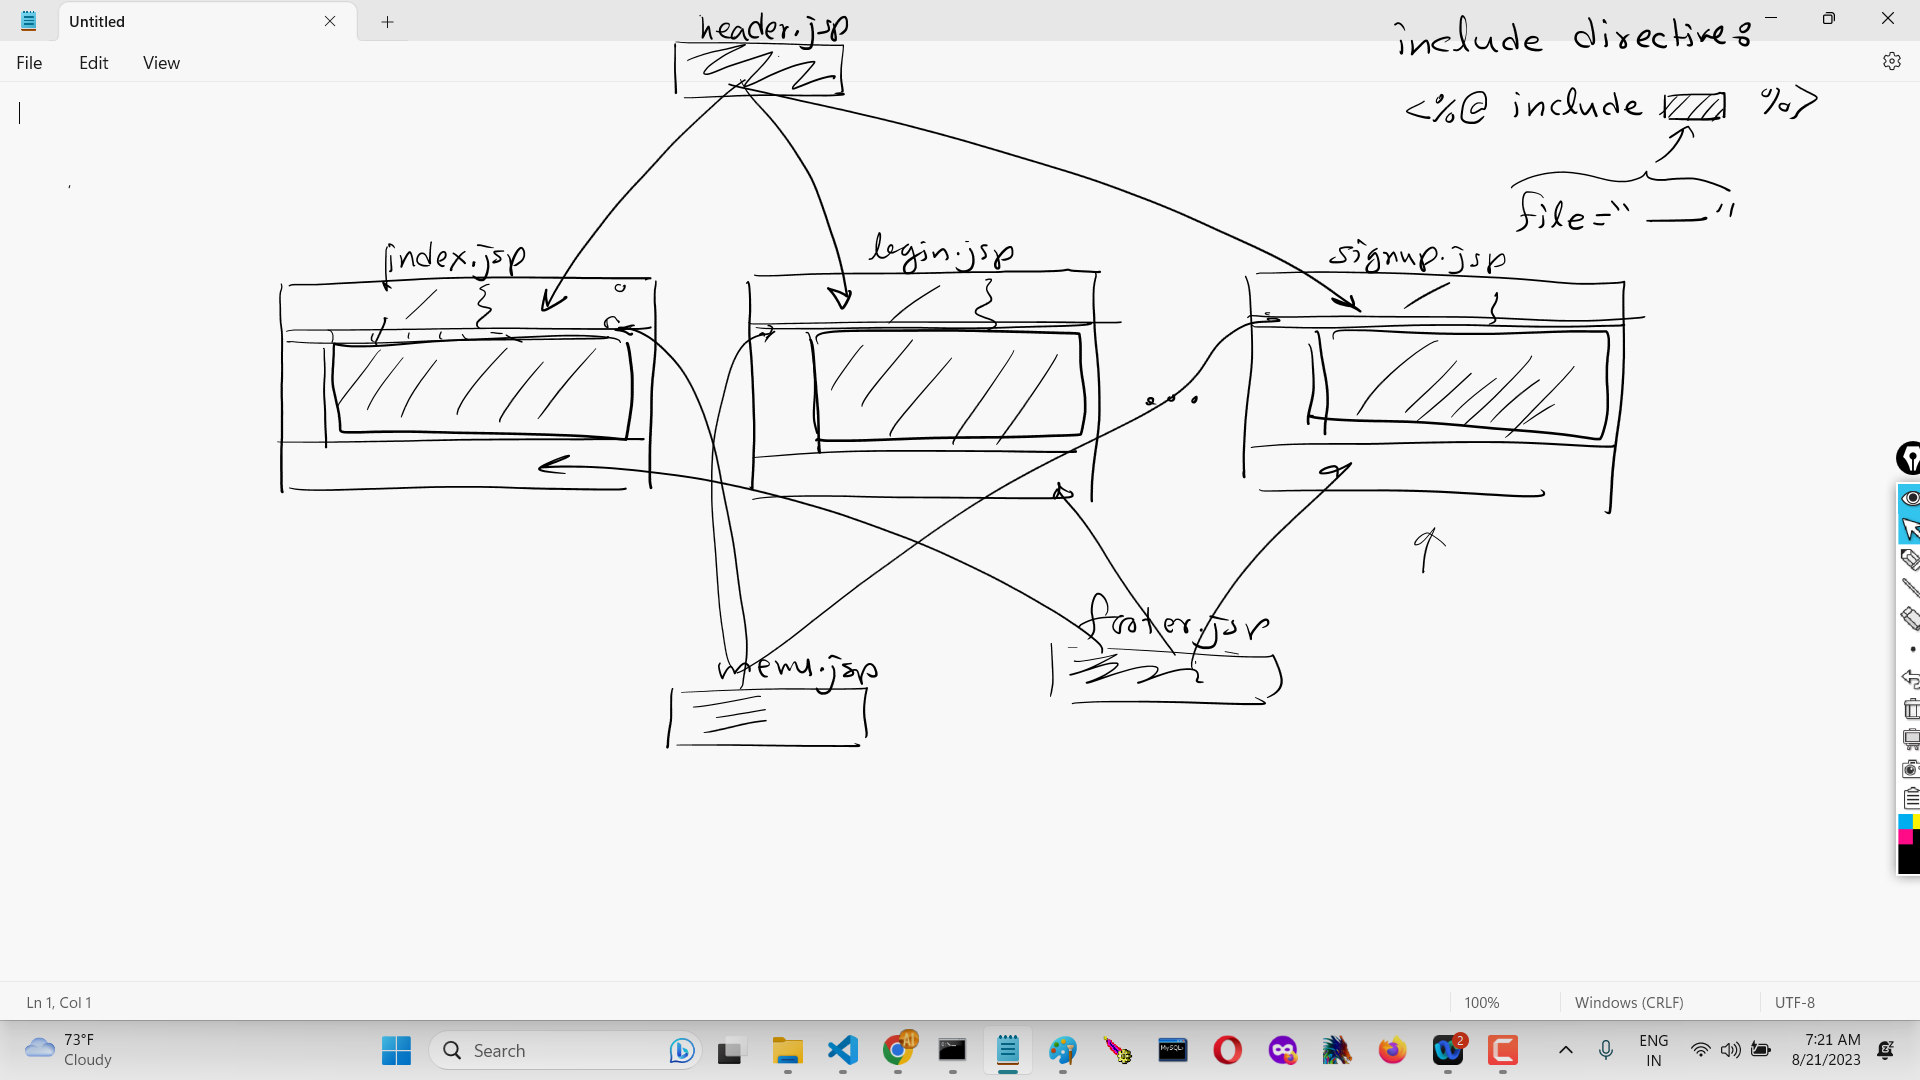 Untitled
File Edit View
header.jsp
include directive:
<%@ include %>
file="——"
index.jsp
login.jsp
signup.jsp
footer.jsp
menu.jsp
Ln 1, Col 1
100%
Windows (CRLF)
UTF-8
73°F
Cloudy
Search
ENG
IN
7:21 AM
8/21/2023
AI
MySQL
2